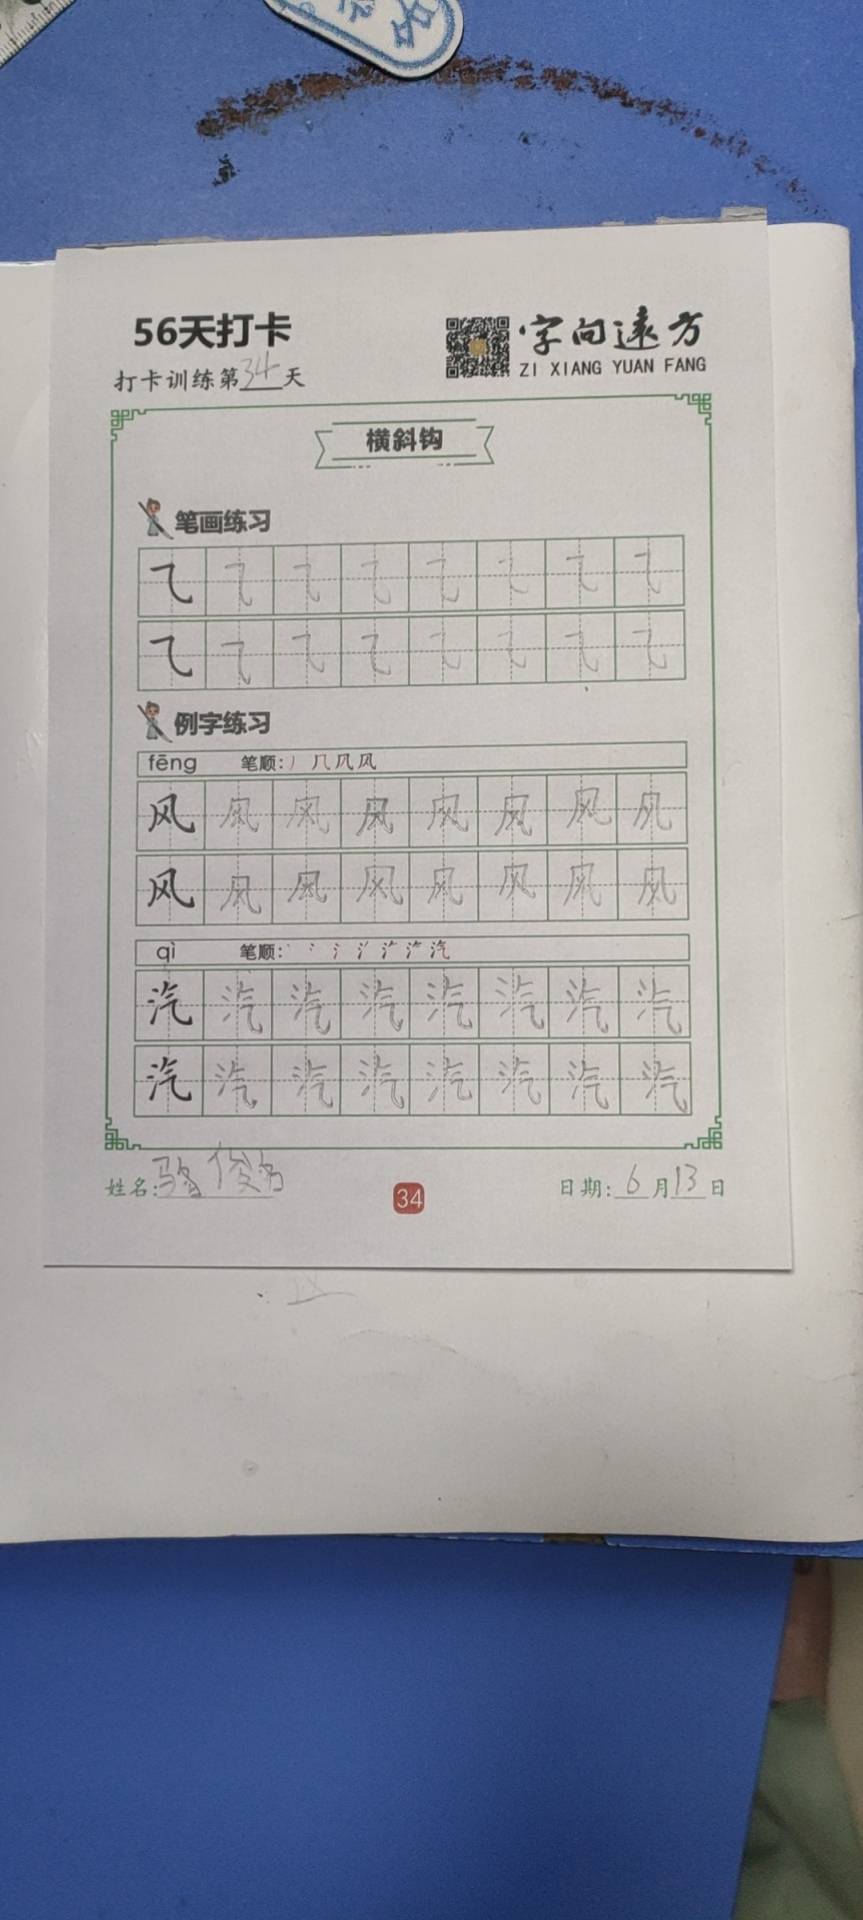 56天打卡
字向遠方
ZI XIANG YUAN FANG
打卡训练第34天
横斜钩
笔画练习
㇈ ㇈ ㇈ ㇈ ㇈ ㇈ ㇈ ㇈
㇈ ㇈ ㇈ ㇈ ㇈ ㇈ ㇈ ㇈
例字练习
fēng 笔顺: 丿 几 凡 风
风 风 风 风 风 风 风 风
风 风 风 风 风 风 风 风
qì 笔顺: 汽
汽 汽 汽 汽 汽 汽 汽 汽
汽 汽 汽 汽 汽 汽 汽 汽
姓名:骆俊
34
日期:6月13日